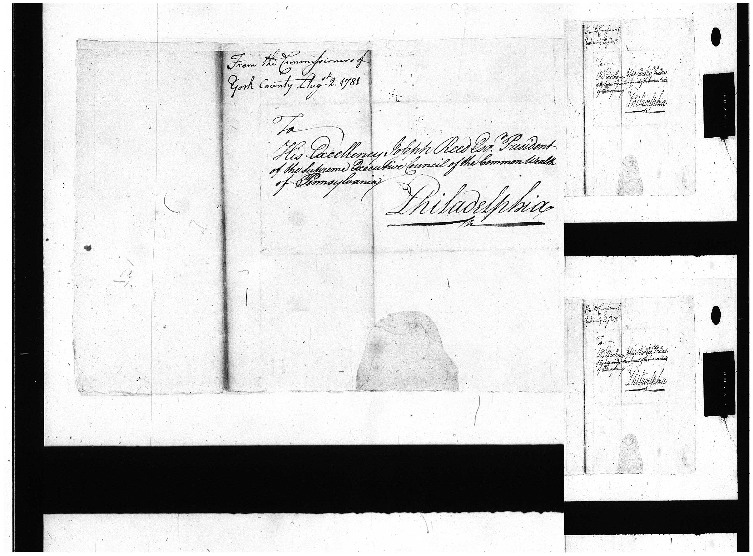 From the Commissioners of
York County Augst. 2. 1781
To
His Excellency Joseph Reed Esqr. President
of the Supreme Executive Council of the Common Wealth
of Pennsylvania
Philadelphia